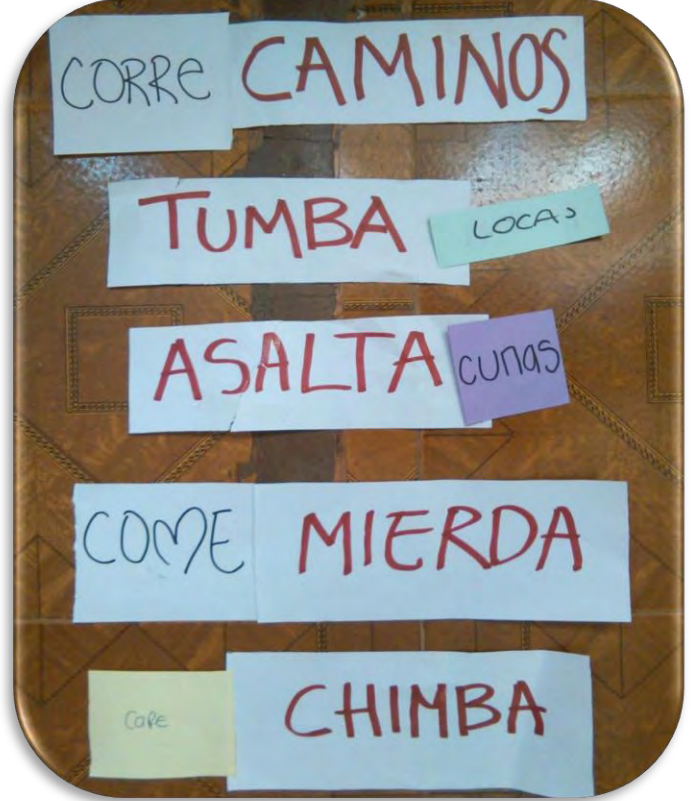 CORRe CAMINOS
TUMBA LOCAS
ASALTA cunas
COME MIERDA
CaRe CHIMBA